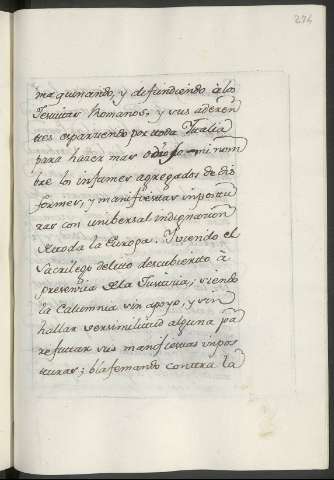 274
maquinando, y difundiendo à los
Jesuitas Romanos, y sus adêren
tes esparciendo por toda Italia
para hazer mas odioso mi nom
bre los infames agregados de dis
formes, y manifiestas impostu
ras con unibersal indignacion
de toda la Europa. Y viendo el
Sacrilego delito descubierto à
presencia de la Justicia; viendo
la Calumnia sin apoyo, y sin
hallar verisimilitud alguna pâ
refutar sus manifiestas impos
turas; blasfemando contra la